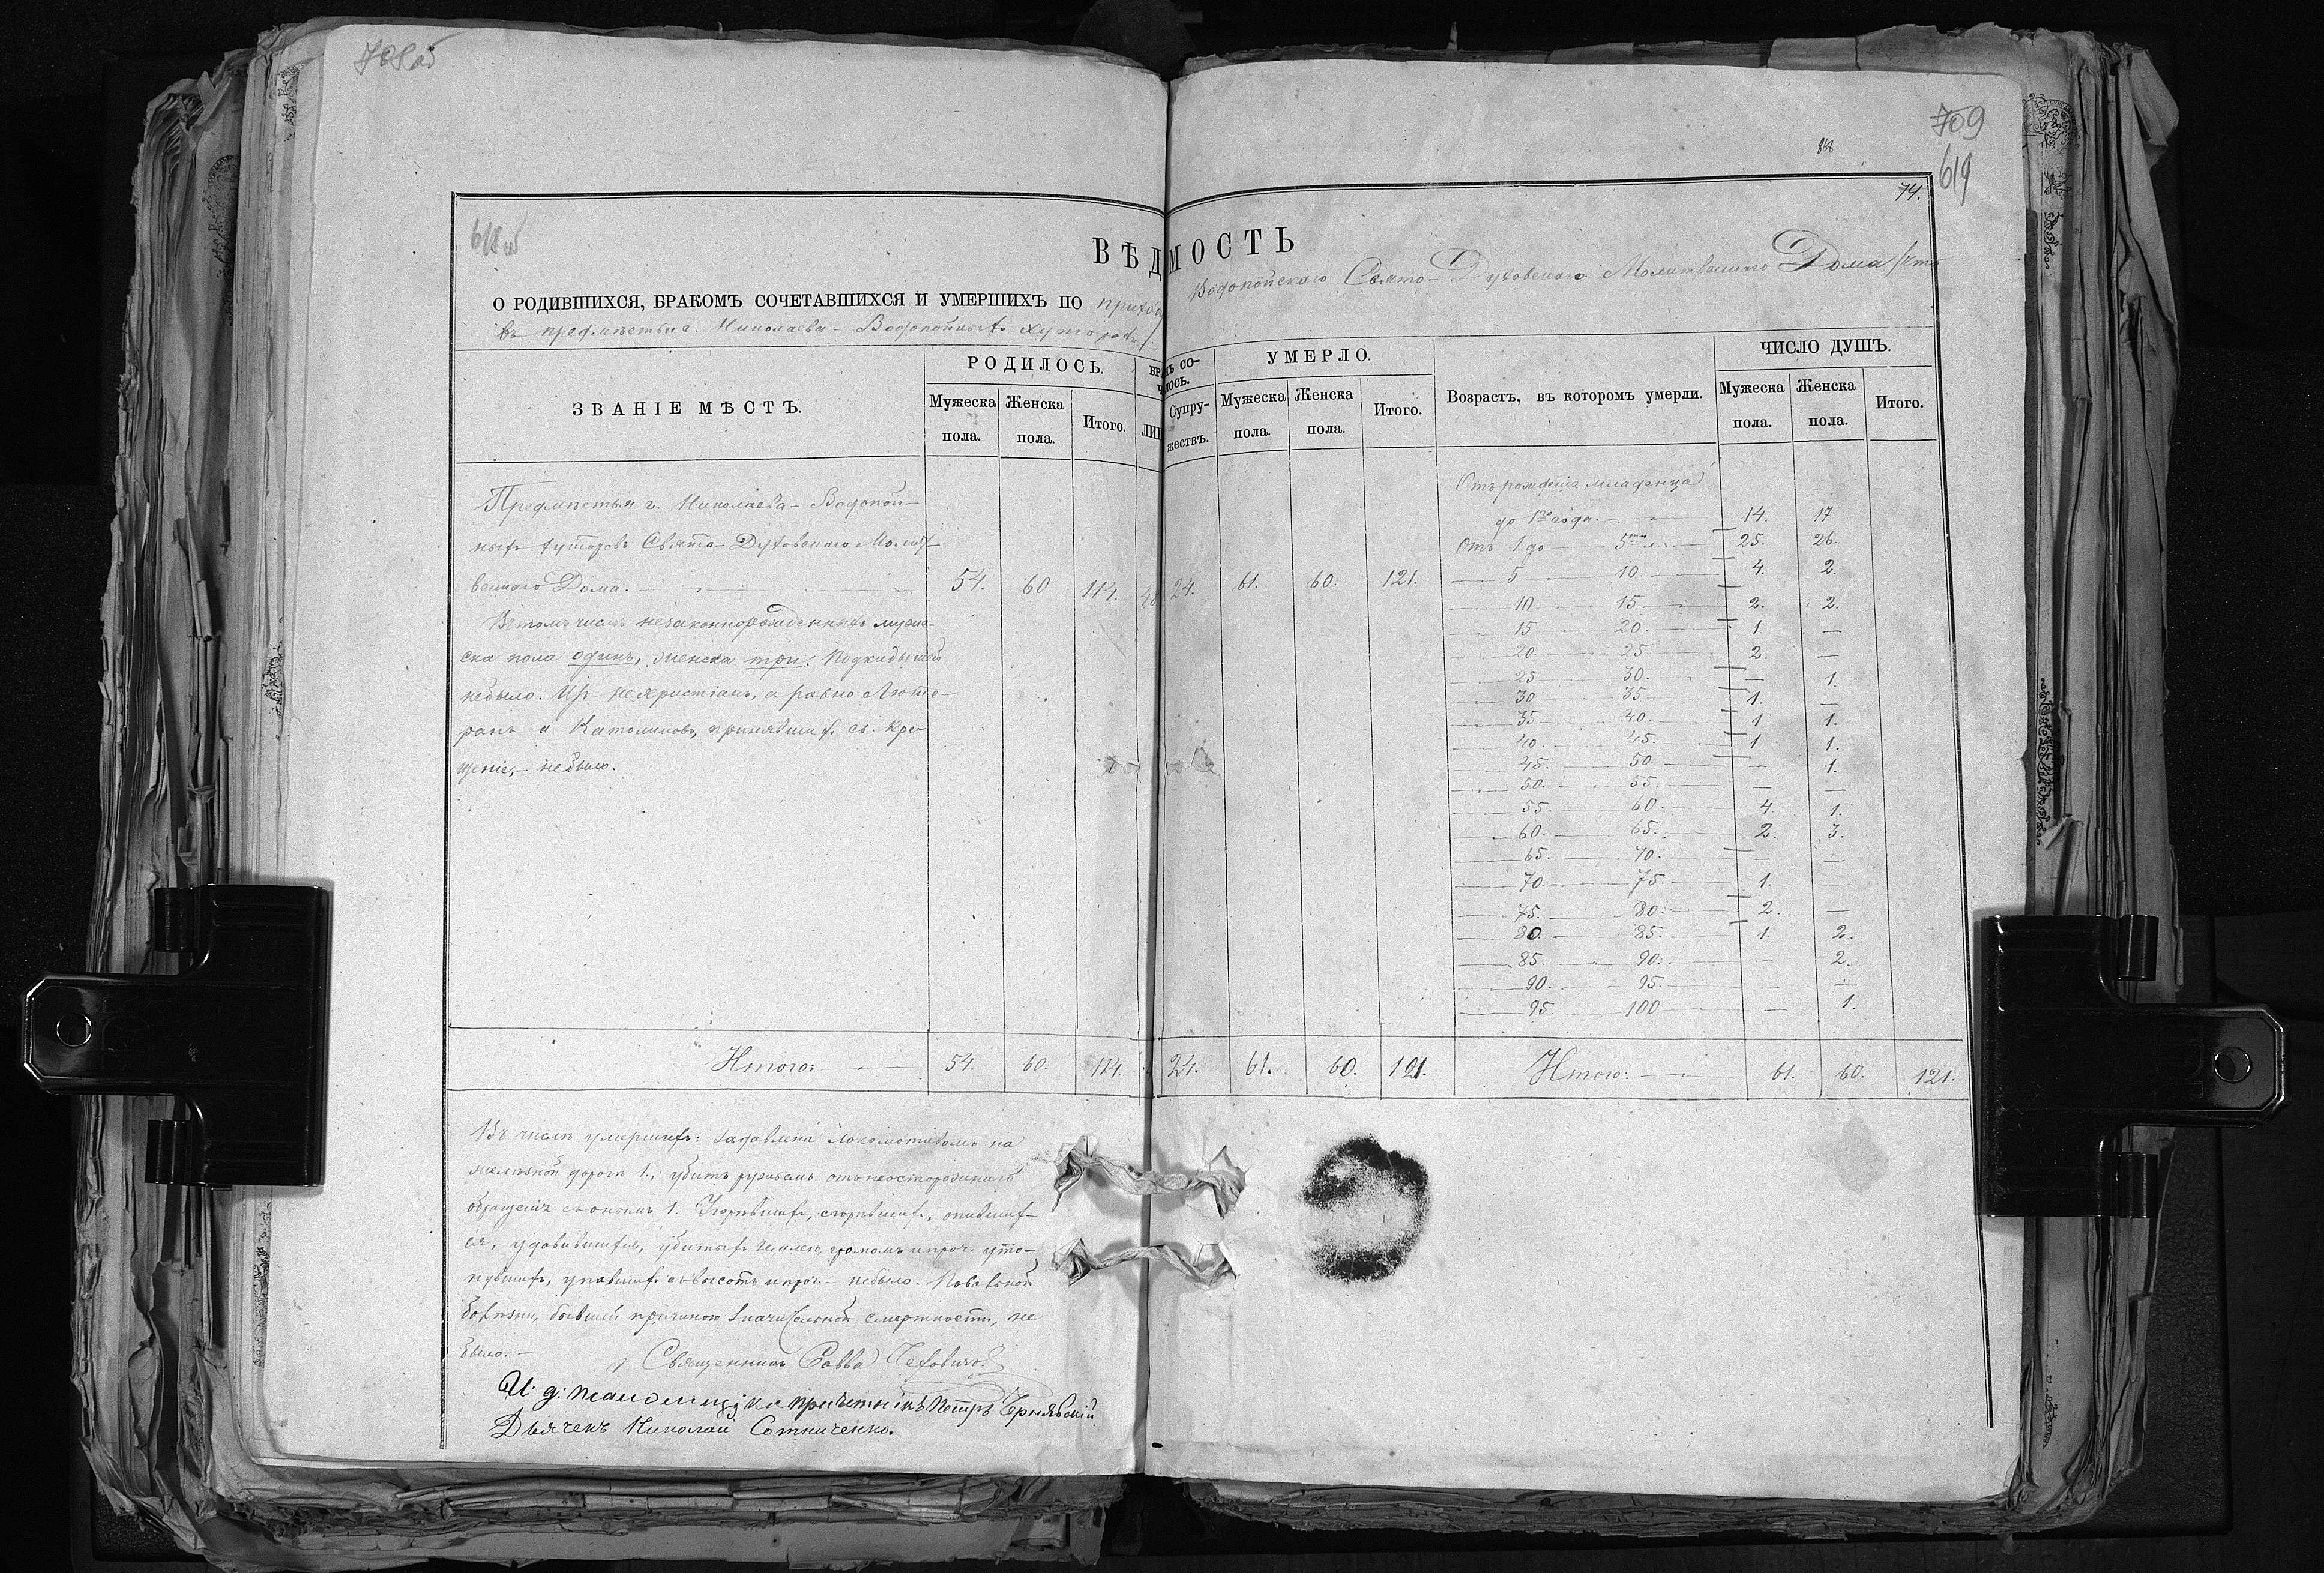 708об
709
619
74.
618об
ВѢДОМОСТЬ
О РОДИВШИХСЯ, БРАКОМЪ СОЧЕТАВШИХСЯ И УМЕРШИХЪ ПО приход Водопойскаго Свято-Духовскаго Молитвеннаго Дома /что
въ предмѣстьи г. Николаева-Водопойныхъ хуторахъ/:
ЗВАНІЕ МѢСТЪ.
РОДИЛОСЬ.
Мужеска пола.
Женска пола.
Итого.
БР МЪ СО-
Ч ЛОСЬ.
ЛИЦ
Супру-
жествъ.
УМЕРЛО.
Мужеска пола.
Женска пола.
Итого.
Возрастъ, въ которомъ умерли.
ЧИСЛО ДУШЪ.
Мужеска пола.
Женска пола.
Итого.
Предмѣстья г. Николаева-Водопой-
ныхъ хуторовъ Свято-Духовскаго Молит-
веннаго Дома. 54. 60 114. 48 24. 61. 60. 121.
Въ томъ числѣ незаконнорожденныхъ муже-
ска пола одинъ, женска три. Подкидышей
небыло. Изъ нехристіанъ, а равно Люте-
ранъ и Католиковъ, принявшихъ св. Кре-
щеніе,- небыло.
Отъ рожденія младенца
до 1го года. 14. 17
Отъ 1 до 5ти л. 25. 26.
5 10. 4. 2.
10 15 2. 2.
15 20. 1. —
20. 25 2. —
25 30. — 1.
30 35 1. —
35 40. 1 1.
40. 45. 1 1.
45. 50. — 1.
50. 55. — —
55. 60. 4. 1.
60. 65. 2. 3.
65. 70. — —
70. 75. 1. —
75. 80. 2. —
80. 85. 1. 2.
85. 90. — 2.
90. 95. — —
95. 100 — 1.
Итого: 54. 60. 114. 24. 61. 60. 121. Итого: 61. 60. 121.
Въ числѣ умершихъ: задавленъ локомотивомъ на
желѣзной дорогѣ 1., убитъ ружьемъ отъ неосторожнаго
обращенія съ онымъ 1. Угорѣвшихъ, сгорѣвшихъ, опивших-
ся, удавившихся, убитыхъ землею, громомъ и проч. уто-
нувшихъ, упавшихъ съ высотъ и проч.- небыло. Повальной
болѣзни, бывшей причиною значительной смертности, не
было.-
Священникъ Савва Чехович
И. д. псаломщика причетникъ Петръ Чернявскій
Дьячекъ Николай Сотниченко.